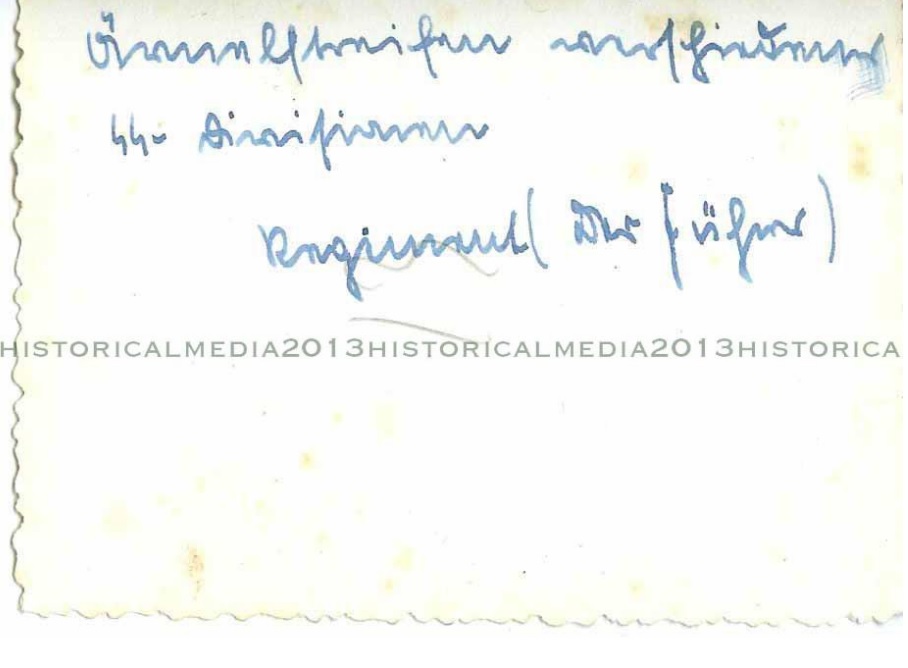 Ärmelstreifen verschiedener
SS- Divisionen
Regiment (Der Führer)
HISTORICALMEDIA2013HISTORICALMEDIA2013HISTORICA